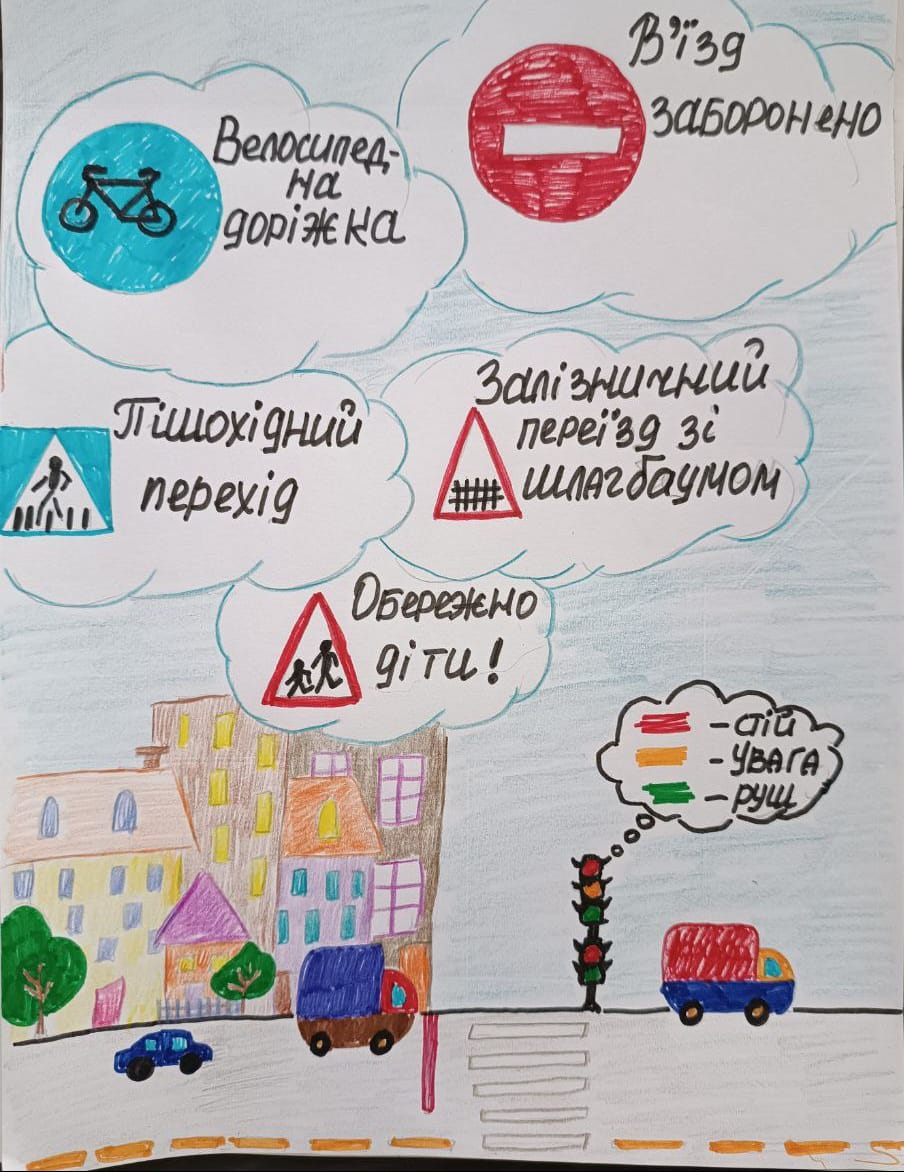 В'їзд
заборонено
Велосипед-
на
доріжка
Пішохідний
перехід
Залізничний
переїзд зі
шлагбаумом
Обережно
діти!
- стій
- УВАГА
- РУШ